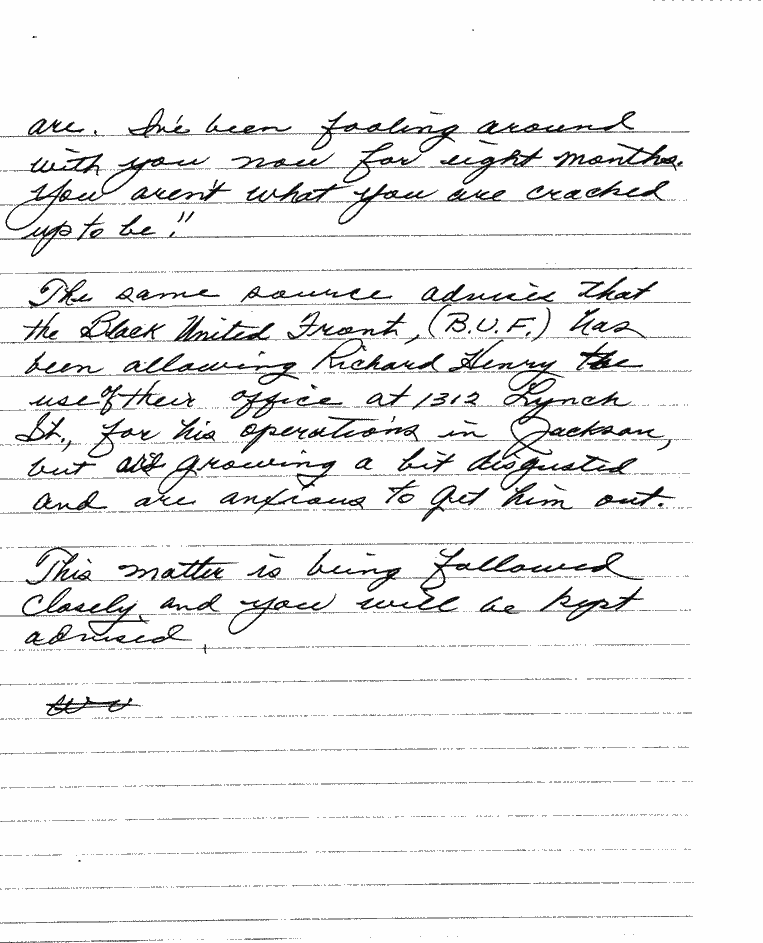 are. I've been fooling around
with you now for eight months.
You aren't what you are cracked
up to be!"
The same source advises that
the Black United Front, (B.U.F.) has
been allowing Richard Henry the
use of their office at 1312 Lynch
St., for his operations in Jackson,
but are growing a bit disgusted
and are anxious to get him out.
This matter is being followed
closely and you will be kept
advised.